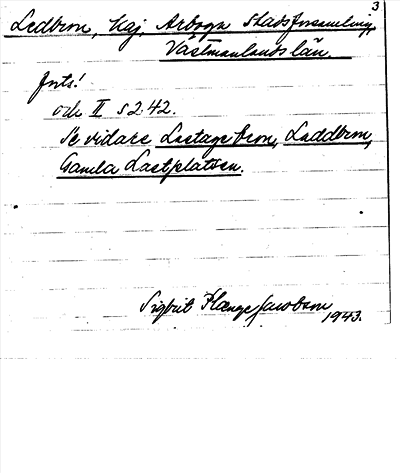 3
Ledbron, kaj, Arboga Stadsförsamling,
Västmanlands län.
forts!
och II s 2:42.
Se vidare Lastagebron, Laddbron,
Gamla Lastplatsen.
Sigbrit Plænge Jacobson
1943.